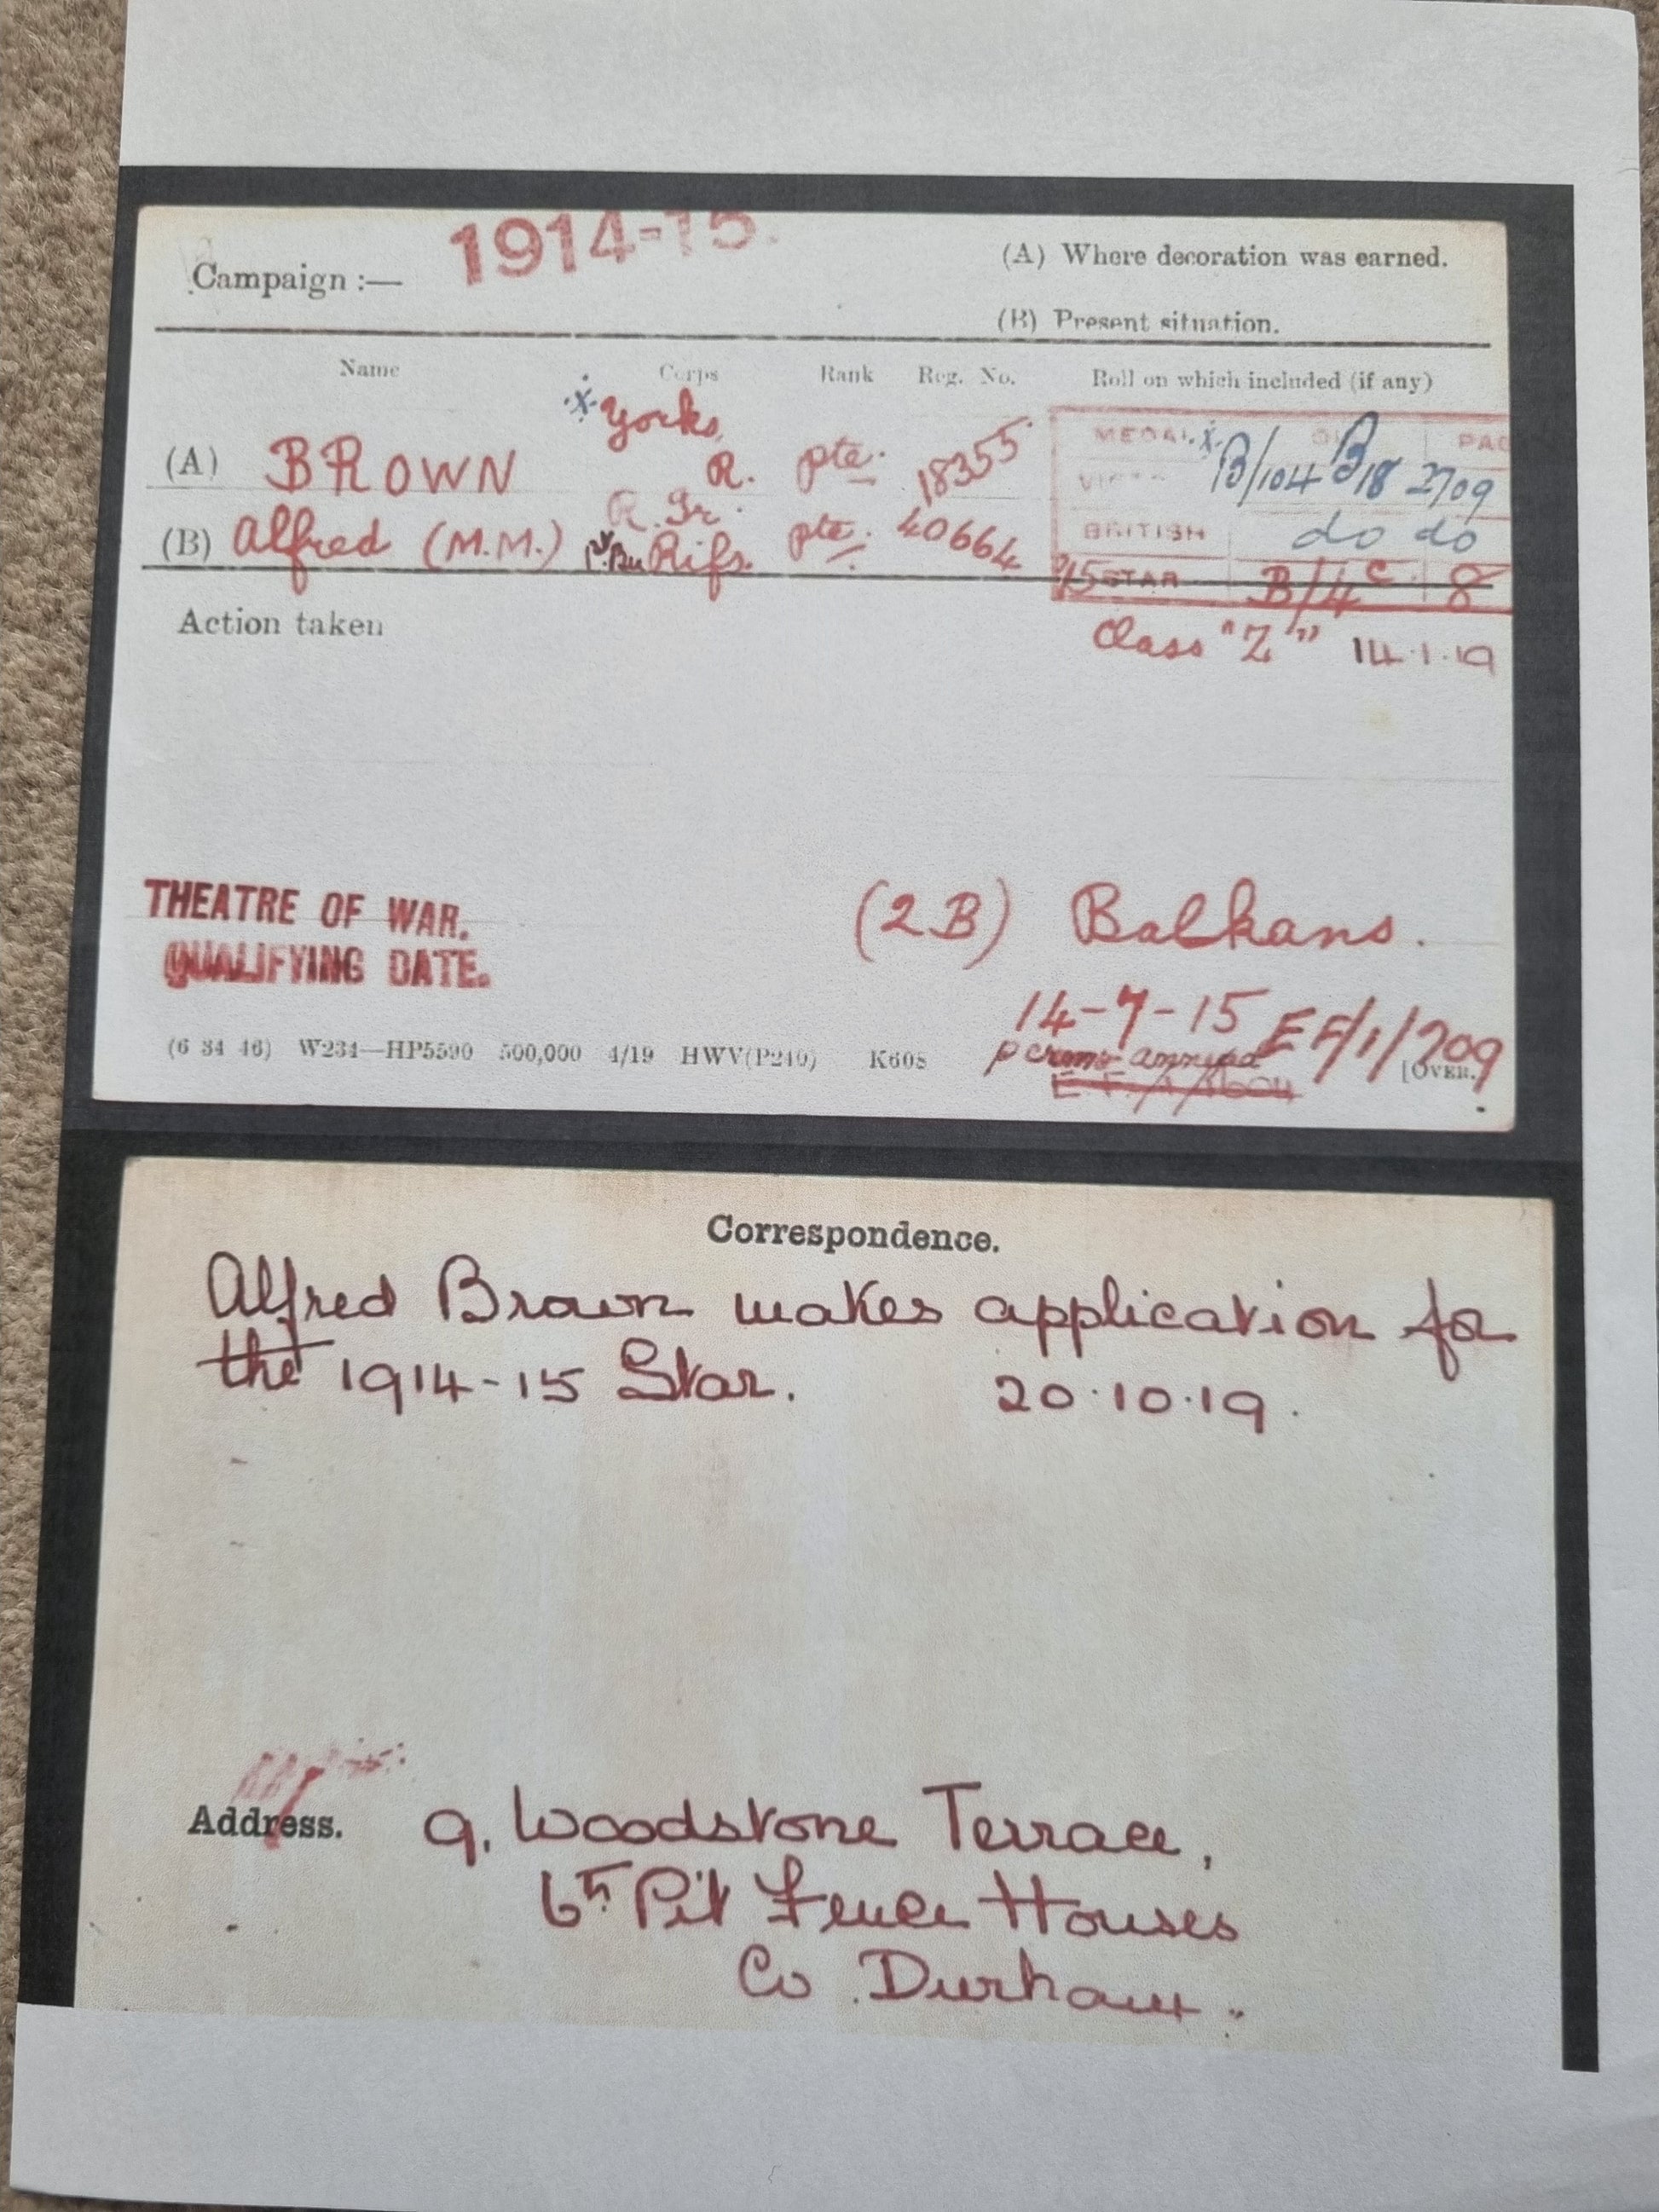 Campaign :— 1914-15.
(A) Where decoration was earned.
(B) Present situation.
Name Corps Rank Reg. No. Roll on which included (if any)
(A) BROWN Yorks R. Pte. 18355
(B) Alfred (M.M.) R. Ir. Rifs. Pte. 40664
MEDAL PAG
B/104 B18 2709
BRITISH do do
15 STAR B/4 C 8
Class "Z" 14.1.19
Action taken
THEATRE OF WAR. (2B) Balkans.
QUALIFYING DATE. 14-7-15 EF/1/709
(6 34 46) W234—HP5590 500,000 4/19 HWV(P240) K608 [OVER.
Correspondence.
Alfred Brown makes application for
the 1914-15 Star. 20.10.19.
Address. 9, Woodstone Terrace,
6th Pit Fence Houses
Co Durham.